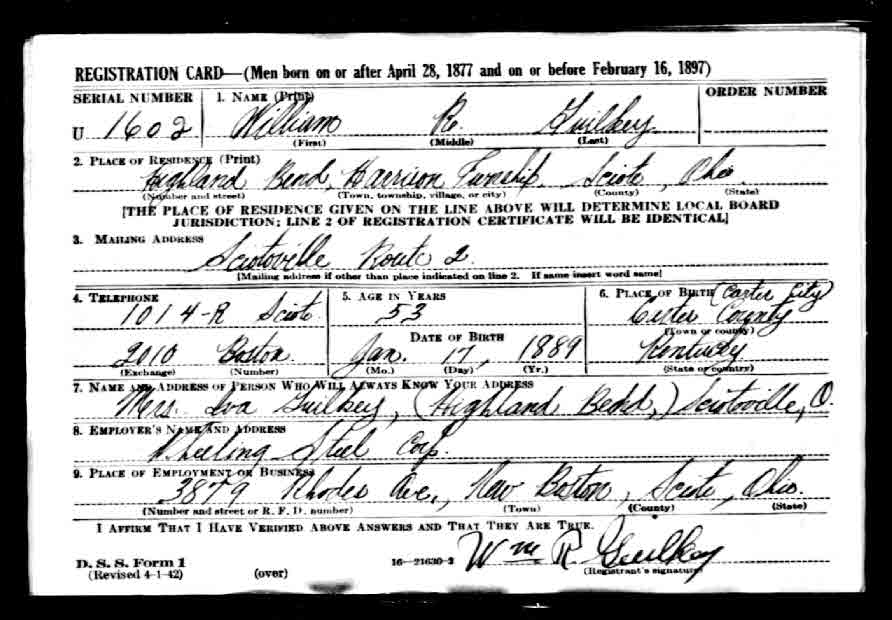 REGISTRATION CARD—(Men born on or after April 28, 1877 and on or before February 16, 1897)
SERIAL NUMBER 1. NAME (Print) ORDER NUMBER
U 1602 William R. Guilkey
(First) (Middle) (Last)
2. PLACE OF RESIDENCE (Print)
Highland Bend, Harrison Township, Scioto, Ohio
(Number and street) (Town, township, village, or city) (County) (State)
[THE PLACE OF RESIDENCE GIVEN ON THE LINE ABOVE WILL DETERMINE LOCAL BOARD
JURISDICTION; LINE 2 OF REGISTRATION CERTIFICATE WILL BE IDENTICAL]
3. MAILING ADDRESS
Sciotoville Route 2.
[Mailing address if other than place indicated on line 2. If same insert word same]
4. TELEPHONE 5. AGE IN YEARS 6. PLACE OF BIRTH (Carter City)
1014-R Scioto 53 Carter County
(Town or county)
DATE OF BIRTH
2010 Boston Jan. 17, 1889 Kentucky
(Exchange) (Number) (Mo.) (Day) (Yr.) (State or country)
7. NAME AND ADDRESS OF PERSON WHO WILL ALWAYS KNOW YOUR ADDRESS
Mrs. Iva Guilkey, (Highland Bend,) Sciotoville, O.
8. EMPLOYER'S NAME AND ADDRESS
Wheeling Steel Corp.
9. PLACE OF EMPLOYMENT OR BUSINESS
3879 Rhodes Ave., New Boston, Scioto, Ohio.
(Number and street or R. F. D. number) (Town) (County) (State)
I AFFIRM THAT I HAVE VERIFIED ABOVE ANSWERS AND THAT THEY ARE TRUE.
D. S. S. Form 1
(Revised 4-1-42) (over) 16—21630-2 Wm R. Guilkey
(Registrant's signature)